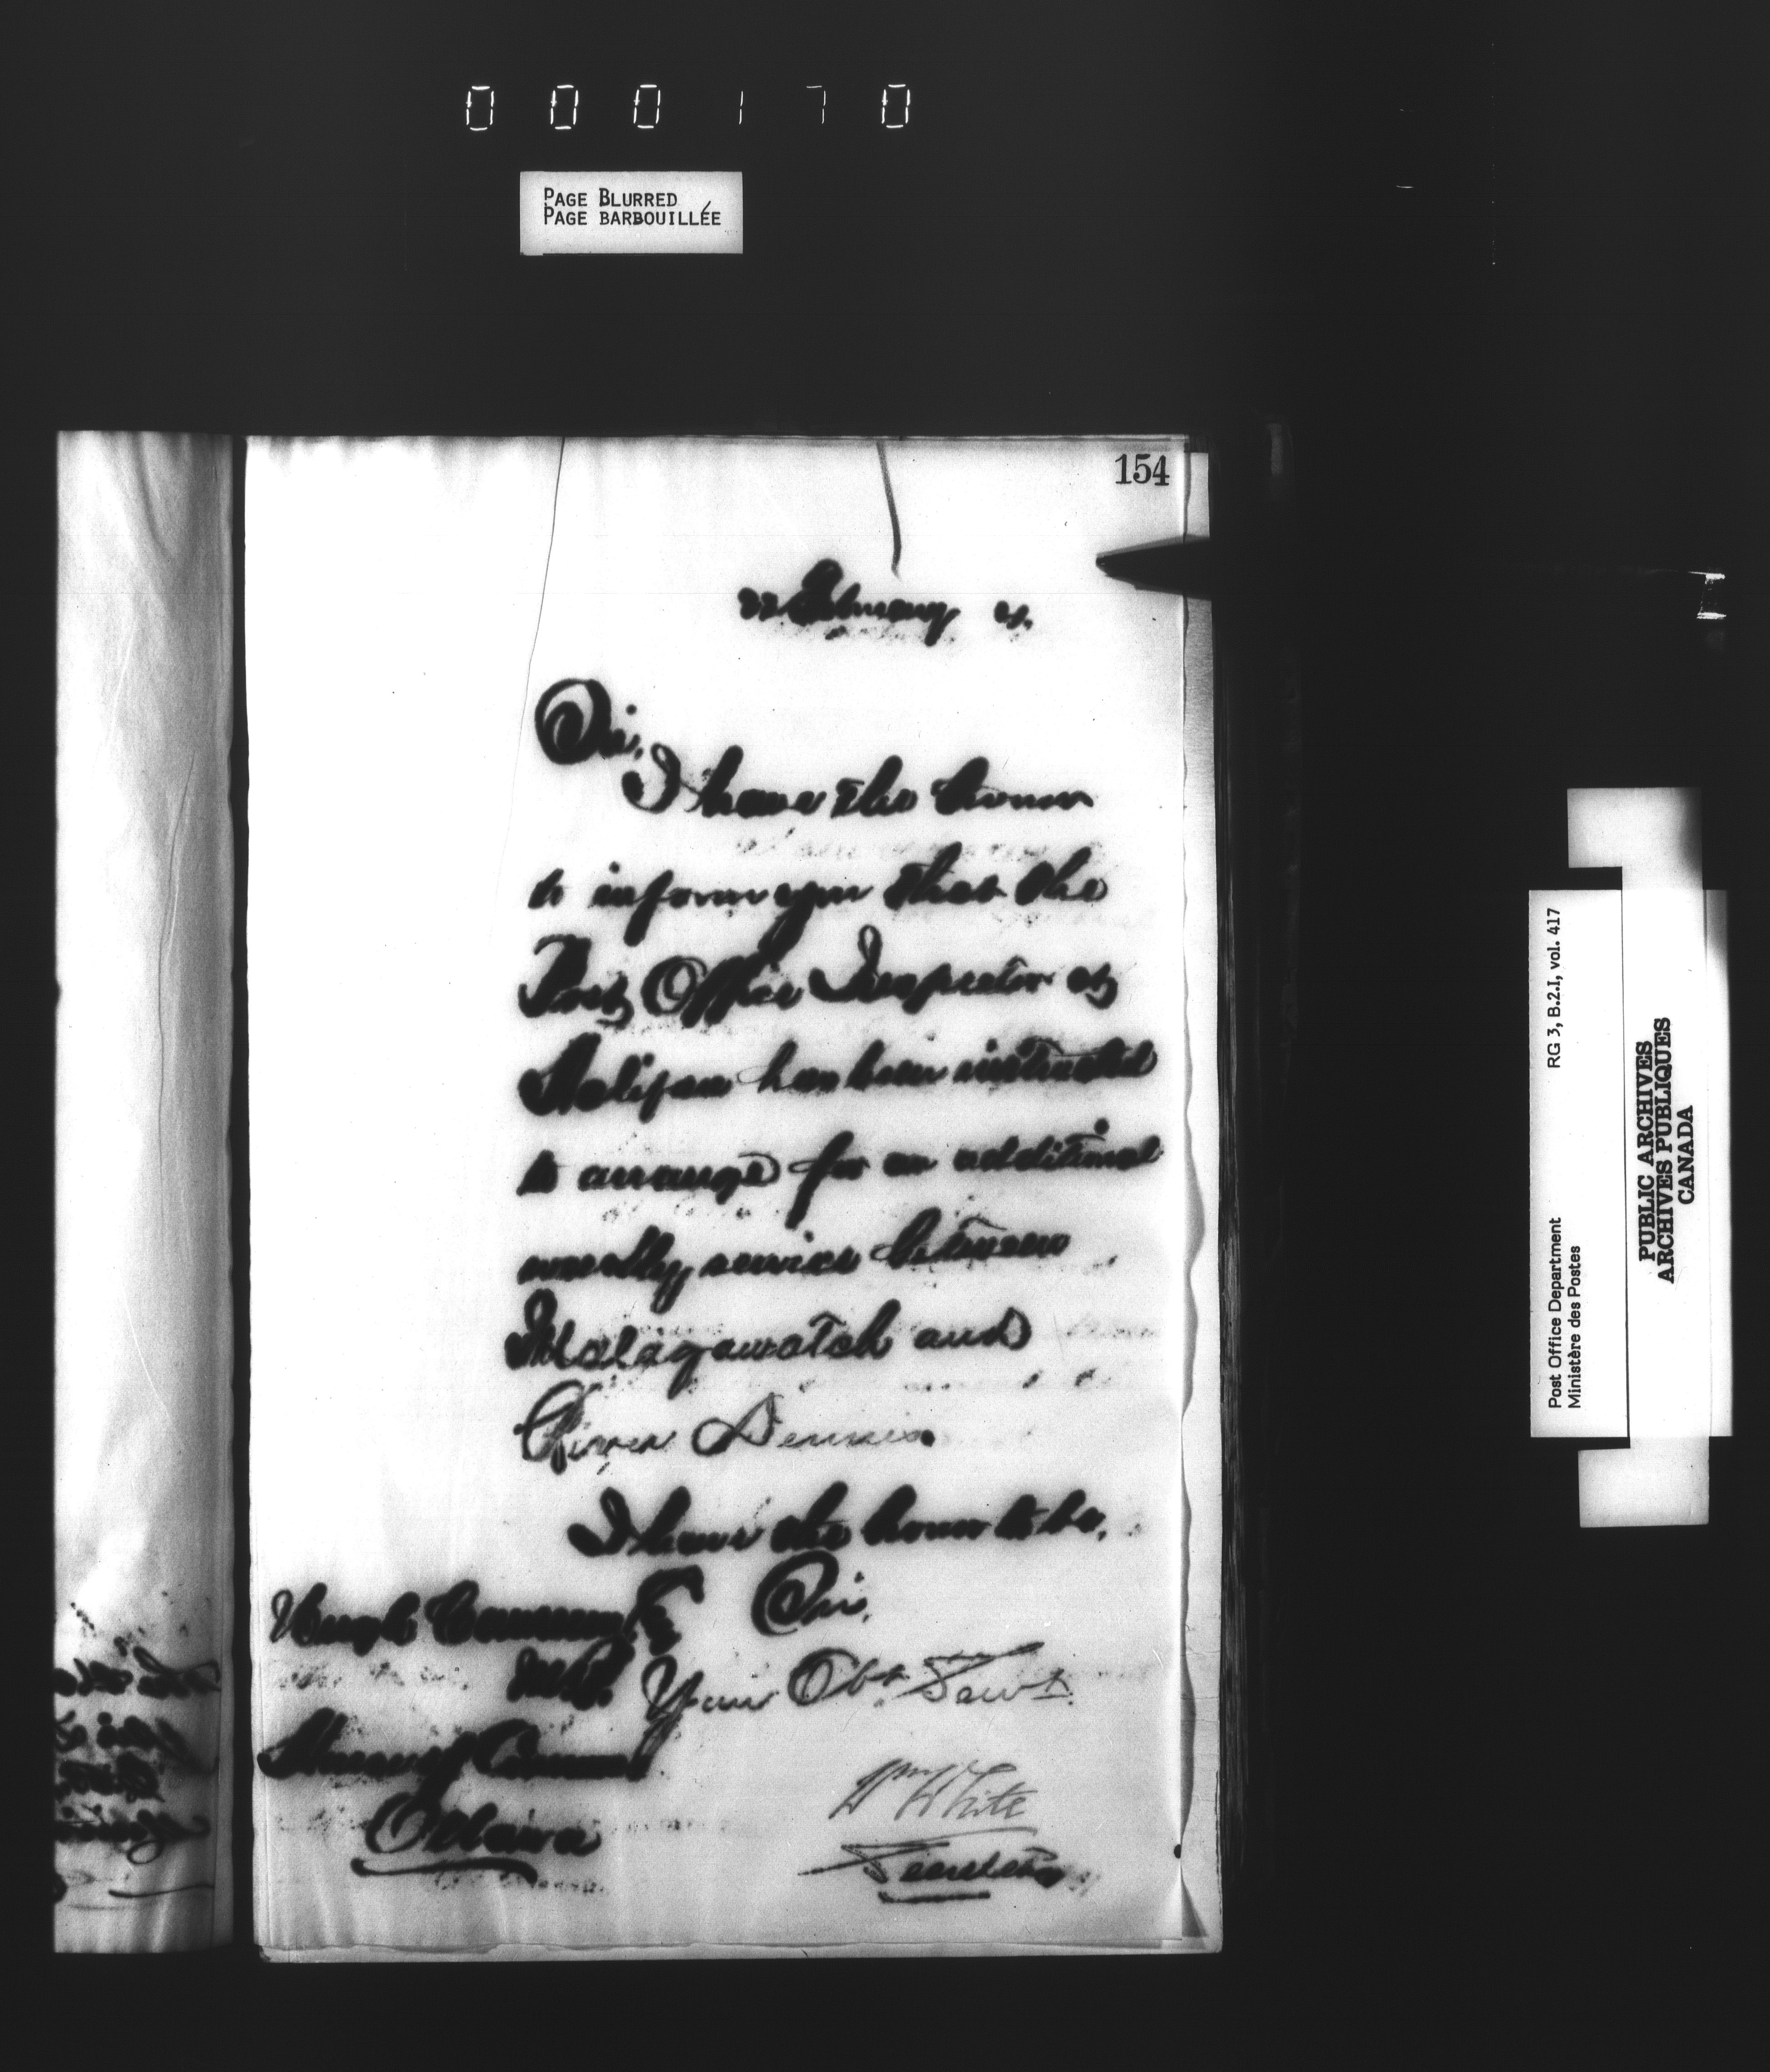 000170
PAGE BLURRED
PAGE BARBOUILLÉE
154
22 February
Sir,
I have the honor
to inform you that the
Post Office Inspector at
Halifax has been instructed
to arrange for an additional
weekly service between
Malagawatch and
River Dennis
I have the honor to be,
Sir,
Hugh Cameron Esq
M.P.
House of Commons
Ottawa
Your Obt. Servt.
Wm White
Secretary
Post Office Department
Ministère des Postes
RG 3, B.2.I, vol. 417
PUBLIC ARCHIVES
ARCHIVES PUBLIQUES
CANADA